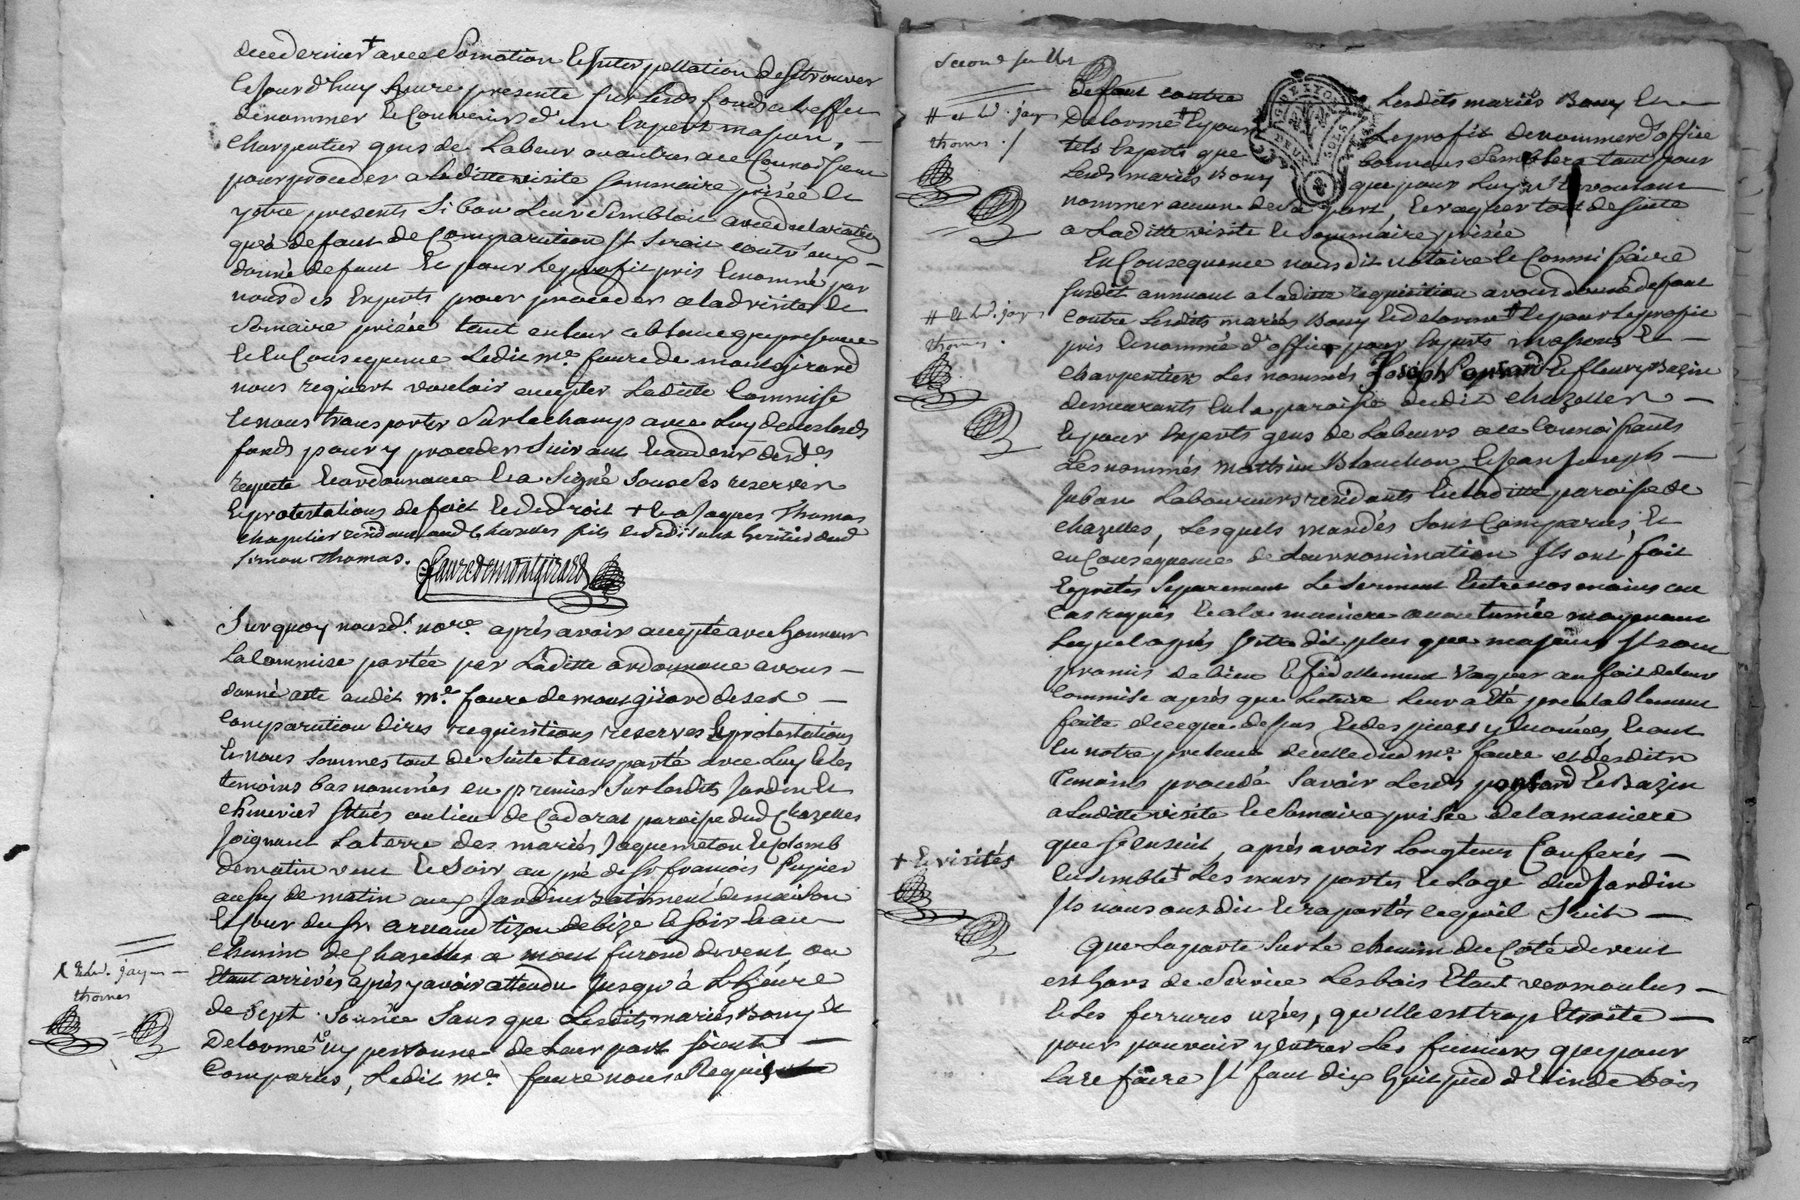 de ce dernier + avec Somation & Interpellation de se trouver
ce jourd'huy heure presente sur lesds fonds a l'effet
de nommer & Convenir d'un Expert masson, —
charpentier gens de Labeur ou autres a ce Connoisseurs
pour proceder a laditte visite Sommaire prisée &
y être presents Si bon Leur Sembloit avec declaration
qu'à defaut de Comparution Il Seroit contr'eux —
donné defaut & pour le profit pris & nommé par
nous des Experts pour proceder a lad visite &
Somaire prisée tant en leur absence que presence
& En Consequence Ledit me. faure de montgirard
nous requiert vouloir accepter Laditte Commise
& nous transporter Sur le champ avec Luy dans lesds
fonds pour y proceder Suivant & au desir desdes
requete & ordonnance & a Signé Sous Ses reserves
& protestations de fait & de droit + & a Jaques Thomas
chapelier residant aud Chazelles fils & Se disant heritier dud
Simon Thomas.
faure de montgirard
Sur quoy nousdt. nore. aprés avoir accepté avec honneur
La Commise portée par Laditte ordonnance avons —
donné acte audit me. faure de montgirard de ses —
Comparution dires requisitions reserves & protestations
& nous Sommes tout de Suite transporté avec Luy & les
temoins bas nommés en premier Sur lesdits Jardin &
chenevier Situés au lieu de Cadorat paroisse dud Chazelles
Joignant La terre des mariés Jaquemeton & Colomb
de matin vent & Soir au pré de Sr. francois Pupier
aussy de matin aux Jardins batiment de maison
& Cour du Sr. arnaud tizon de bize & Soir & au
chemin de Chazelles a mont furond de vent, ou
Etant arrivés aprés y avoir attendu Jusqu'à L'heure
R & led. Jaques —
thomas
de Sept. Sonnée Sans que Lesdits mariés Bouy &
Delorme ny personne de Leur part Soient —
Comparus, Ledit me. faure nous Requis
Second feuillet
defaut contre Lesdits mariés Bouy & —
# & led. jaques
thomas /
Delorme + & pour Le profit de nommer d'office
tels Experts que bon nous Semblera tant pour
Lesds mariés Bouy que pour Luy n'En voulant
nommer aucun de Sa part, & vaquer tout de Suite
a Laditte visite & Sommaire prisée
En Consequence nousdit notaire & Commissaire
Susdit annuant a laditte requisition avons donné defaut
# & led. jaques
thomas.
contre Lesdits mariés Bouy & delorme + & pour Le profit
pris & nommé d'office pour Experts massons & —
Charpentier Les nommés Joseph Ponsard & fleury Bazin
demeurants En la paroisse dudit chazelles —
& pour Experts gens de Labeurs a ce Connoissants
Les nommés mathieu Blanchon & Jean Joseph —
Juban Laboureurs residants En Laditte paroisse de
chazelles, Lesquels mandés Sont Comparus &
en Consequence de Leur nomination Ils ont fait
& preté Separement Le Serment Entre nos mains au
Cas requis & a la maniere accoutumée moyenant
Lequel aprés S'etre dit plus que majeurs Ils ont
promis de bien & fidellement vaquer au fait de leur
Commise aprés que Lecture Leur a été prealablement
faite de ce que dessus & des pieces y Enoncées, & ont
En notre presence de celle dud me. faure et desdits
temoins procedé Savoir Lesds ponsard & Bazin
a Laditte visite & Somaire prisée de la maniere
que S'ensuit, aprés avoir Longtems Conferés —
+ & visités
Ensemble + Les murs portes & Loge dud Jardin
Ils nous ont dit & raportés ce qu'il Suit —
Que La porte Sur Le chemin du Coté de vent
est hors de Service Les bois Etant vermoulus —
& Les ferrures uzées, qu'elle est trop Etroite —
pour pouvoir y Entrer Les fumiers que pour
La refaire Il faut dix huit pied de Bois